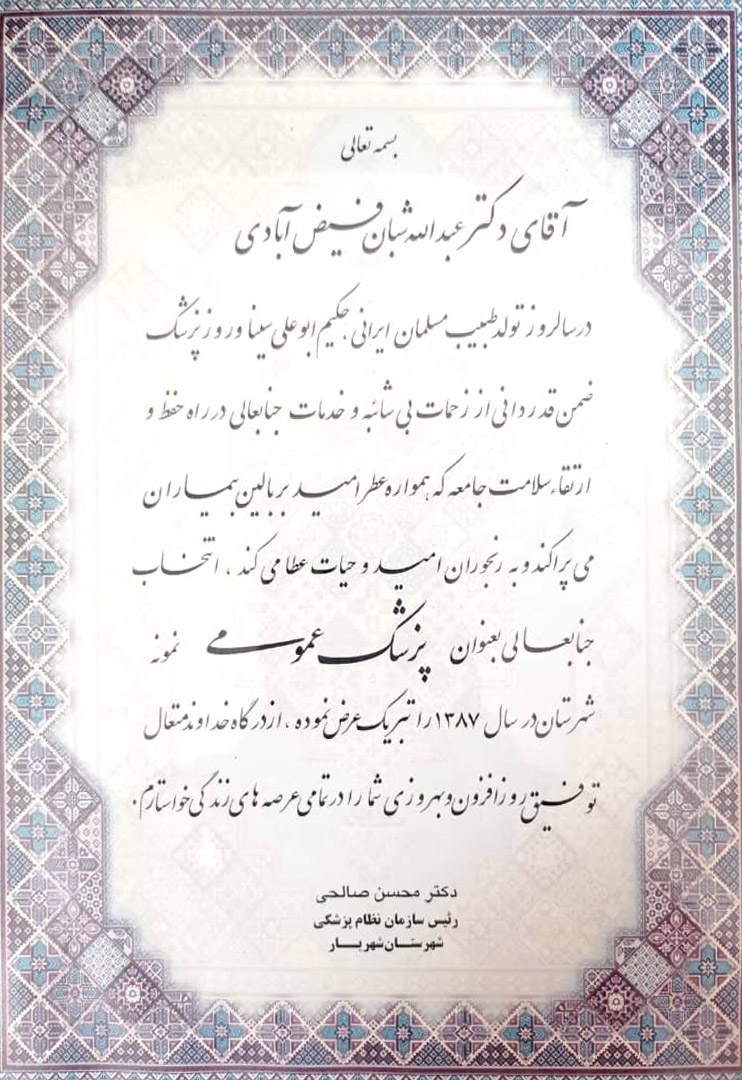 بسمه تعالی
آقای دکتر عبدالله شبان فیض آبادی
در سالروز تولد طبیب مسلمان ایرانی حکیم ابوعلی سینا و روز پزشک
ضمن قدردانی از زحمات بی شائبه و خدمات جنابعالی در راه حفظ و
ارتقاء سلامت جامعه که همواره عطر امید بر بالین بیماران
می پراکند و به رنجوران امید و حیات عطا می کند ، انتخاب
جنابعالی بعنوان پزشک عمومی نمونه
شهرستان در سال ۱۳۸۷ را تبریک عرض نموده ، از درگاه خداوند متعال
توفیق روزافزون و بهروزی شما را در تمامی عرصه های زندگی خواستارم.
دکتر محسن صالحی
رئیس سازمان نظام پزشکی
شهرستان شهریار